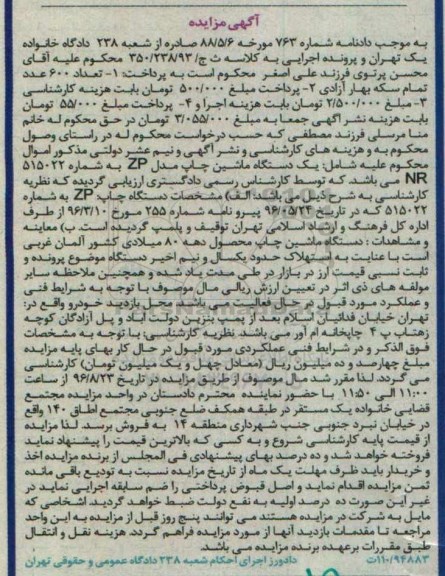 آگهی مزایده
به موجب دادنامه شماره ۷۶۳ مورخه ۸۸/۵/۶ صادره از شعبه ۲۳۸ دادگاه خانواده
یک تهران و پرونده اجرایی به کلاسه ث ج/ ۳۵۰/۲۳۸/۹۳ محکوم علیه آقای
محسن پرتوی فرزند علی اصغر محکوم است به پرداخت: ۱- تعداد ۶۰۰ عدد
تمام سکه بهار آزادی ۲- پرداخت مبلغ ۵۰۰/۰۰۰ تومان بابت هزینه کارشناسی
۳- مبلغ ۲/۵۰۰/۰۰۰ تومان بابت هزینه اجرا و ۴- پرداخت مبلغ ۵۵/۰۰۰ تومان
بابت هزینه نشر آگهی جمعا به مبلغ ۳/۰۵۵/۰۰۰ تومان در حق محکوم له خانم
منا مرسلی فرزند مصطفی که حسب درخواست محکوم له در راستای وصول
محکوم به و هزینه های کارشناسی و نشر آگهی و نیم عشر دولتی مذکور اموال
محکوم علیه شامل: یک دستگاه ماشین چاپ مدل ZP به شماره ۵۱۵۰۲۲
NR می باشد. که توسط کارشناس رسمی دادگستری ارزیابی گردیده که نظریه
کارشناسی به شرح ذیل می باشد: الف) مشخصات دستگاه چاپ ZP به شماره
۵۱۵۰۲۲ که در تاریخ ۹۶/۰۵/۲۴ پیرو نامه شماره ۲۵۵ مورخ ۹۶/۳/۱۰ از طرف
اداره کل فرهنگ و ارشاد اسلامی تهران توقیف و پلمپ گردیده است. ب) معاینه
و مشاهدات : دستگاه ماشین چاپ محصول دهه ۸۰ میلادی کشور آلمان غربی
است با عنایت به استهلاک حدود یکسال و نیم اخیر دستگاه موضوع پرونده و
ثابت نسبی قیمت ارز در بازار در طی مدت یاد شده و همچنین ملاحظه سایر
مولفه های ذی اثر در تعیین ارزش ریالی مال موصوف با توجه به شرایط فنی
و عملکرد مورد قبول در حال فعالیت می باشد . محل بازدید خودرو واقع در:
تهران خیابان فدائیان اسلام بعد از پمپ بنزین دولت آباد و پل آزادگان کوچه
زهتاب پ ۴ چاپخانه ام آور می باشد. نظریه کارشناسی: با توجه به مشخصات
فوق الذکر و در شرایط فنی عملکردی مورد قبول در حال کار بهای پایه مزایده
مبلغ چهارصد و ده میلیون ریال (معادل چهل و یک میلیون تومان) کارشناسی
می گردد. لذا مقرر شد مال موصوف از طریق مزایده در تاریخ ۹۶/۸/۲۳ از ساعت
۱۱:۰۰ الی ۱۱:۵۰ با حضور نماینده محترم دادستان در واحد مزایده مجتمع
قضایی خانواده یک مستقر در طبقه همکف ضلع جنوبی مجتمع اطاق ۱۴۰ واقع
در خیابان نبرد جنوبی جنب شهرداری منطقه ۱۴ به فروش برسد. لذا مزایده
از قیمت پایه کارشناسی شروع و به کسی که بالاترین قیمت را پیشنهاد نماید
فروخته خواهد شد و ده درصد بهای پیشنهادی فی المجلس از برنده مزایده اخذ
و خریدار باید ظرف مهلت یک ماه از تاریخ مزایده نسبت به تودیع باقی مانده
ثمن مزایده اقدام نماید و اصل قبوض پرداختی را ضم سابقه اجرایی نماید در
غیر این صورت ده درصد اولیه به نفع دولت ضبط خواهد گردید. اشخاصی که
مایل به شرکت در مزایده هستند می توانند پنج روز قبل از مزایده به این واحد
مراجعه تا مقدمات بازدید آنها از مورد مزایده فراهم گردد. هزینه نقل و انتقال
طبق مقررات برعهده برنده مزایده می باشد.
۱۱۰/۹۴۸۸۳ت دادورز اجرای احکام شعبه ۲۳۸ دادگاه عمومی و حقوقی تهران